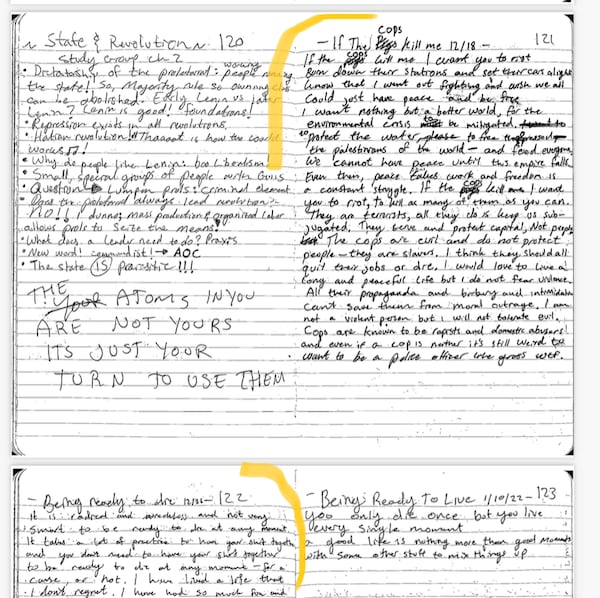 ~ State & Revolution ~ 120
Study Group ch.2
• Dictatorship of the proletariat: working people running
the state! So, Majority rule so owning class
can be abolished. Early Lenin vs later
Lenin? Lenin is good! foundations!
• Repression exists in all revolutions.
• Haitian revolution!! Thaaaat is how it could
work!!
• Why do people like Lenin: boo Liberalism!
• Small, special groups of people with Guns
• Question: Lumpen prols: criminal element
• Does the proletariat always lead revolution?
NO!! I dunno; mass production & organized labor
allows prols to seize the means!
• What does a leader need to do? Praxis
• New word! commandist! → AOC
• The state IS parasitic!!!
THE
ATOMS IN YOU
ARE NOT YOURS
ITS JUST YOUR
TURN TO USE THEM
121
- If The cops kill me 12/18 -
If the cops kill me I want you to riot
Burn down their stations and set their cars alight
know that I went out fighting and wish we all
could just have peace and be free
I want nothing but a better world, for the
environmental crisis to be mitigated,
to protect the water,
the palestinians of the world — and feed everyone.
We cannot have peace until this empire falls.
Even then, peace takes work and freedom is
a constant struggle. If the cops kill me I want
you to riot, to kill as many of them as you can.
They are terrorists, all they do is keep us sub-
jugated. They serve and protect capital, Not people
The cops are evil and do not protect
people — they are slavers. I think they should all
quit their jobs or die. I would love to live a
long and peaceful life but I do not fear violence.
All their propaganda and and intimidation
can't save them from moral outrage. I am
not a violent person but I will not tolerate evil.
Cops are known to be rapists and domestic abusers
and even if a cop is neither it's still weird to
want to be a police officer like gross
- Being ready to die 122
It is radical and and not very
smart to be ready to die at any moment.
It takes a lot of practice to have your shit together
and you don't need to have your shit together
to be ready to die at any moment - for a
cause, or not. I have lived a life that
I don't regret. I have had so much fun and
- Being Ready To Live 1/10/22 - 123
you only die once, but you live
every single moment
a good life is nothing more than good moments
with some other stuff to mix things up